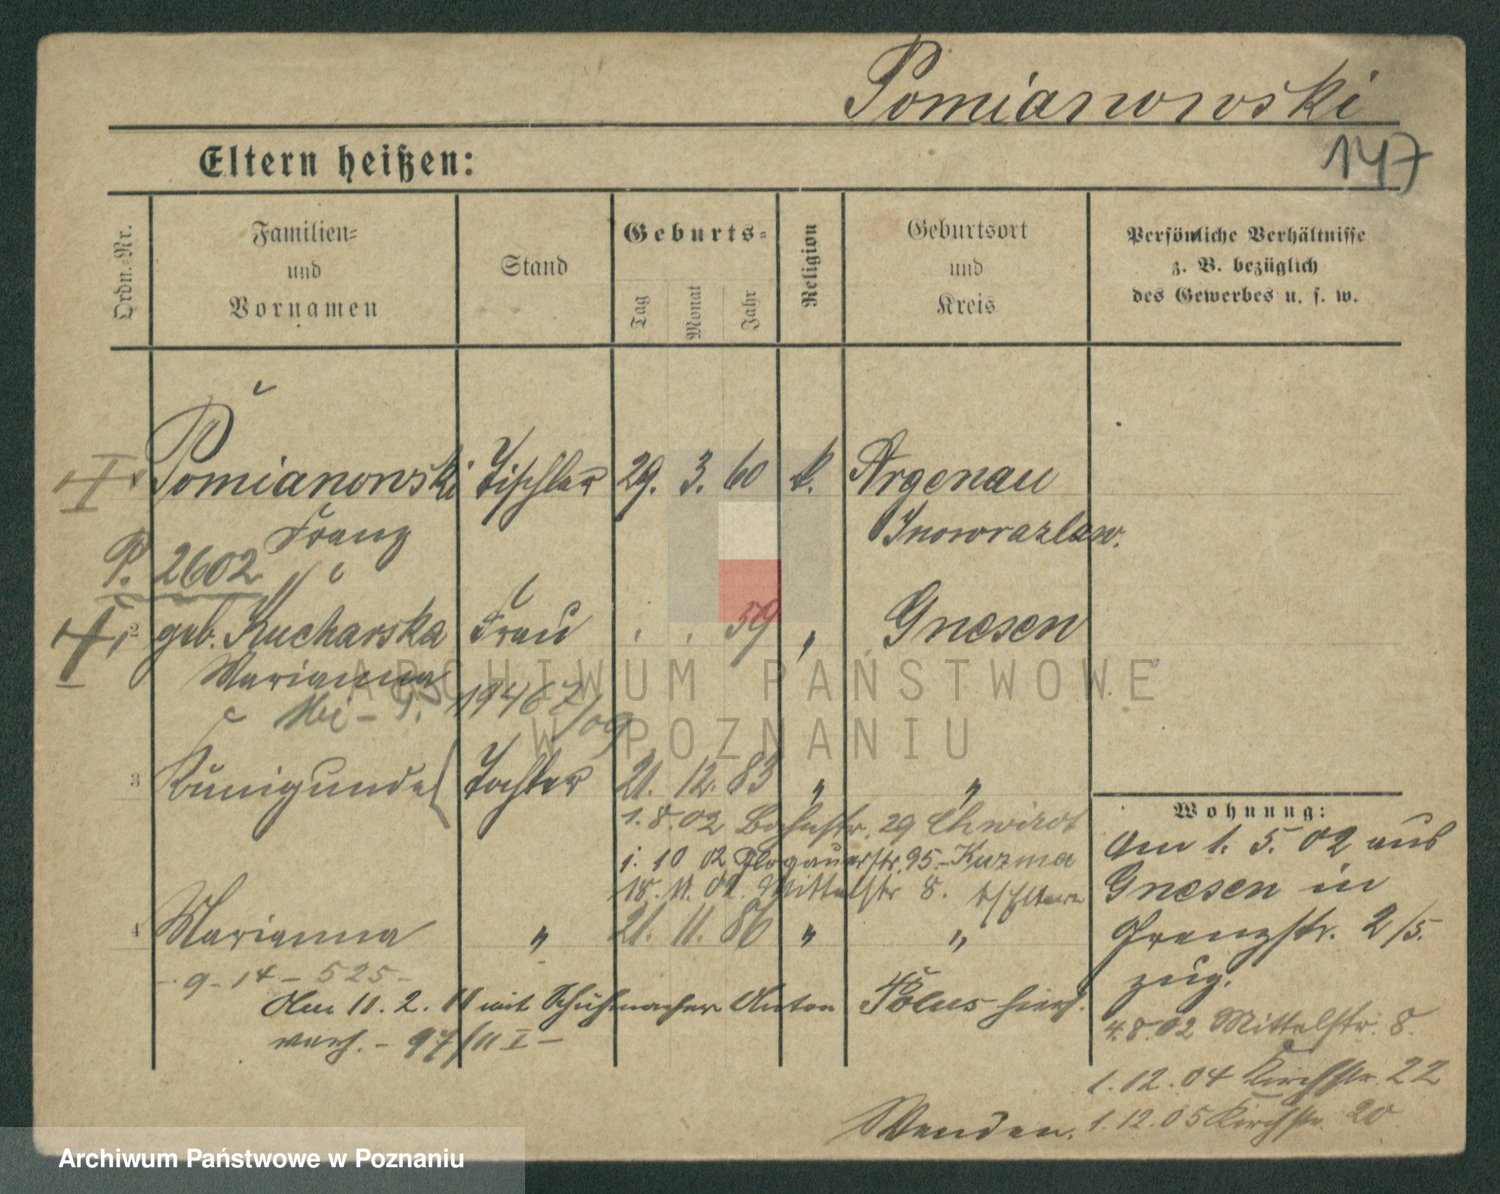 Pomianowski
147
Eltern heißen:
Ordn.-Nr.
Familien-
und
Vornamen
Stand
Geburts-
Tag
Monat
Jahr
Religion
Geburtsort
und
Kreis
Persönliche Verhältnisse
z. B. bezüglich
des Gewerbes u. s. w.
Pomianowski Tischler 29. 3. 60 k. Argenau
Franz Inowrazlaw.
P. 2602
2 geb. Kucharska Frau 59 " Gnesen
Marianna
19467/09
3 Kunigunde Tochter 21. 12. 83 " "
1. 8. 02 Bahnstr. 29 Chwirot
1. 10 02 Glogauerstr. 95 - Kuzma
18. 11. 02. Mittelstr 8. b/Eltern
4 Marianna " 21. 11. 86 " "
- 9 - 14 - 525 -
Am 11. 2. 11 mit Schuhmacher Anton Polus hier.
verh. - 97/11 I -
Wohnung:
Am 1. 5. 02 aus
Gnesen in
Prenzstr. 2/5.
zug.
4. 8 02 Mittelstr. 8.
1. 12. 04 Kirchstr. 22
1. 12. 05 Kirchstr. 20
Wenden.
ARCHIWUM PAŃSTWOWE
W POZNANIU
Archiwum Państwowe w Poznaniu